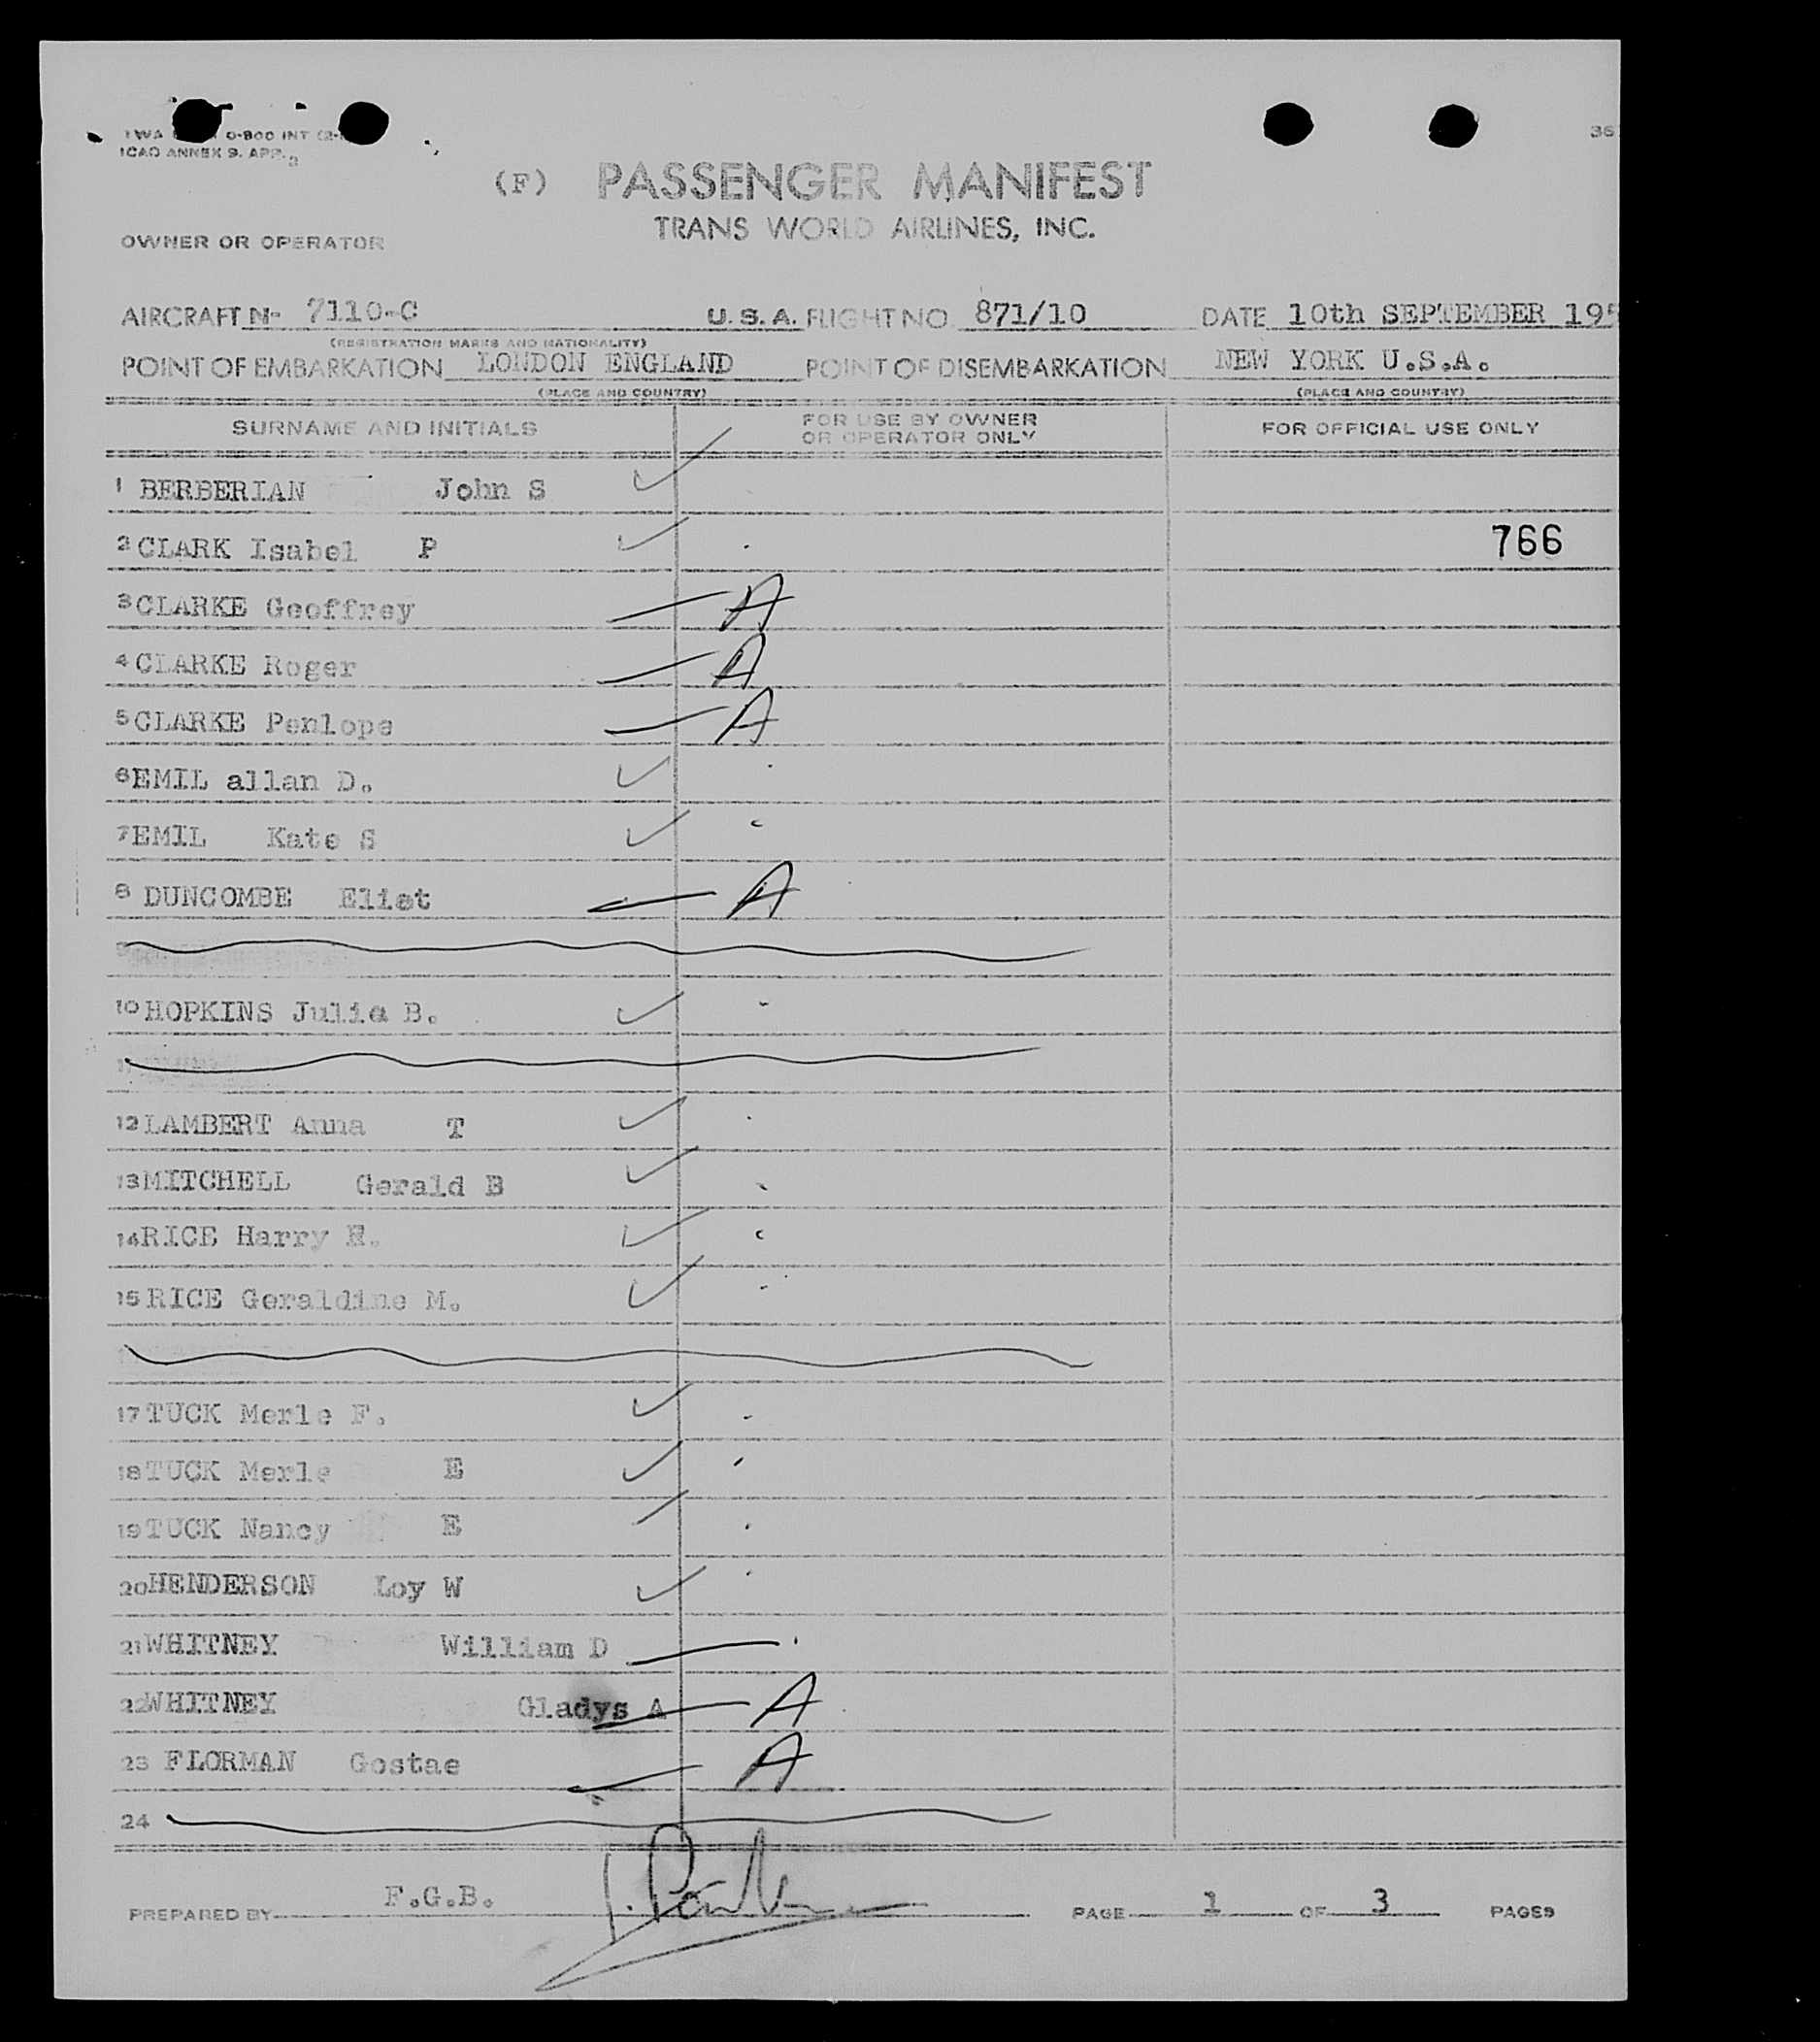 TWA O-800 INT (2- 36
ICAO ANNEX 9. APP. 3
(F) PASSENGER MANIFEST
TRANS WORLD AIRLINES, INC.
OWNER OR OPERATOR
AIRCRAFT N- 7110-C U.S.A. FLIGHT NO 871/10 DATE 10th SEPTEMBER 195
(REGISTRATION MARKS AND NATIONALITY)
POINT OF EMBARKATION LONDON ENGLAND POINT OF DISEMBARKATION NEW YORK U.S.A.
(PLACE AND COUNTRY) (PLACE AND COUNTRY)
SURNAME AND INITIALS FOR USE BY OWNER OR OPERATOR ONLY FOR OFFICIAL USE ONLY
1 BERBERIAN John S
2 CLARK Isabel P 766
3 CLARKE Geoffrey A
4 CLARKE Roger A
5 CLARKE Penlope A
6 EMIL allan D.
7 EMIL Kate S
8 DUNCOMBE Eliet A
9
10 HOPKINS Julia B.
11
12 LAMBERT Anna T
13 MITCHELL Gerald B
14 RICE Harry E.
15 RICE Geraldine M.
17 TUCK Merle F.
18 TUCK Merle E
19 TUCK Nancy E
20 HENDERSON Loy W
21 WHITNEY William D
22 WHITNEY Gladys A A
23 FLORMAN Gostae A
24
PREPARED BY F.G.B. PAGE 1 OF 3 PAGES